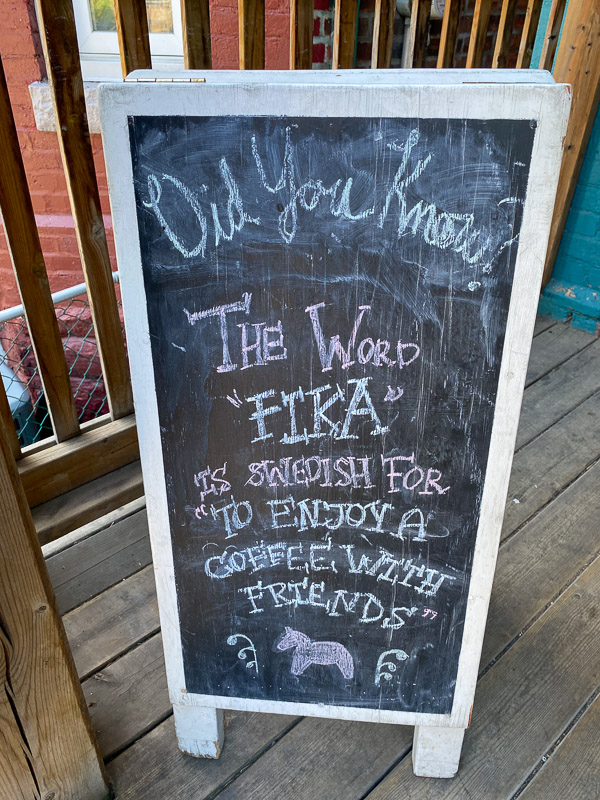 Did You Know?
THE WORD
"FIKA"
IS SWEDISH FOR
"TO ENJOY A
COFFEE WITH
FRIENDS"